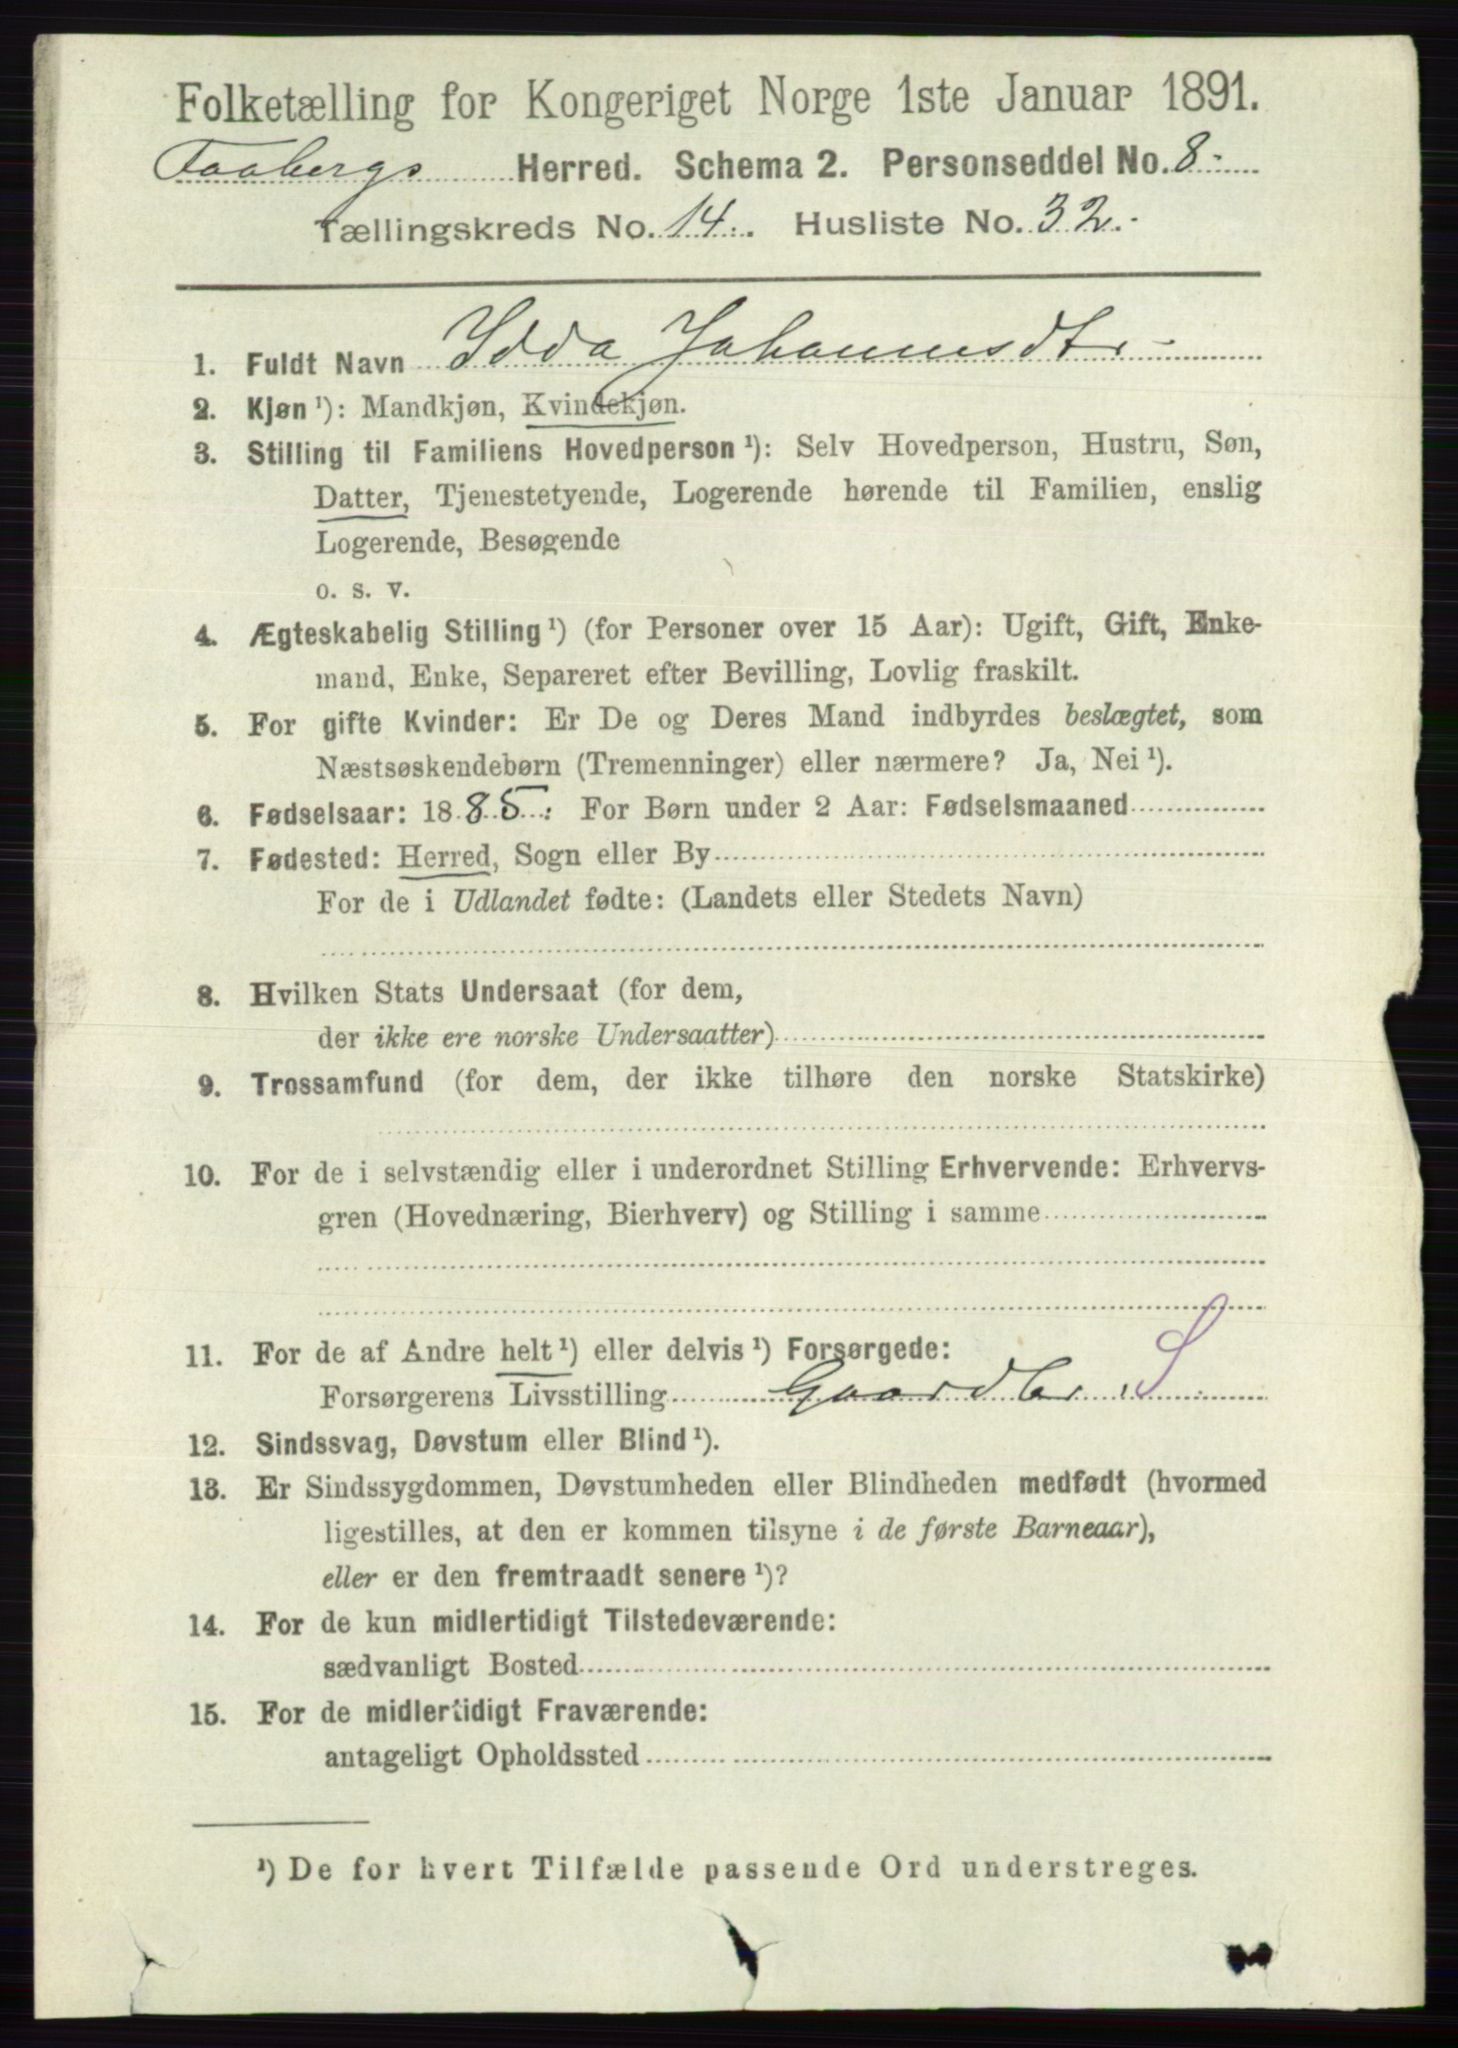 Folketælling for Kongeriget Norge 1ste Januar 1891.
Faabergs Herred. Schema 2. Personseddel No. 8.
Tællingskreds No. 14. Husliste No. 32.
1. Fuldt Navn Idda Johannesdtr
2. Kjøn ¹): Mandkjøn, Kvindekjøn.
3. Stilling til Familiens Hovedperson ¹): Selv Hovedperson, Hustru, Søn,
Datter, Tjenestetyende, Logerende hørende til Familien, enslig
Logerende, Besøgende
o. s. v.
4. Ægteskabelig Stilling ¹) (for Personer over 15 Aar): Ugift, Gift, Enke-
mand, Enke, Separeret efter Bevilling, Lovlig fraskilt.
5. For gifte Kvinder: Er De og Deres Mand indbyrdes beslægtet, som
Næstsøskendebørn (Tremenninger) eller nærmere? Ja, Nei ¹).
6. Fødselsaar: 1885. For Børn under 2 Aar: Fødselsmaaned
7. Fødested: Herred, Sogn eller By
For de i Udlandet fødte: (Landets eller Stedets Navn)
8. Hvilken Stats Undersaat (for dem,
der ikke ere norske Undersaatter)
9. Trossamfund (for dem, der ikke tilhøre den norske Statskirke)
10. For de i selvstændig eller i underordnet Stilling Erhvervende: Erhvervs-
gren (Hovednæring, Bierhverv) og Stilling i samme
11. For de af Andre helt ¹) eller delvis ¹) Forsørgede:
Forsørgerens Livsstilling Gaardbr. S
12. Sindssvag, Døvstum eller Blind ¹).
13. Er Sindssygdommen, Døvstumheden eller Blindheden medfødt (hvormed
ligestilles, at den er kommen tilsyne i de første Barneaar),
eller er den fremtraadt senere ¹)?
14. For de kun midlertidigt Tilstedeværende:
sædvanligt Bosted
15. For de midlertidigt Fraværende:
antageligt Opholdssted
¹) De for hvert Tilfælde passende Ord understreges.